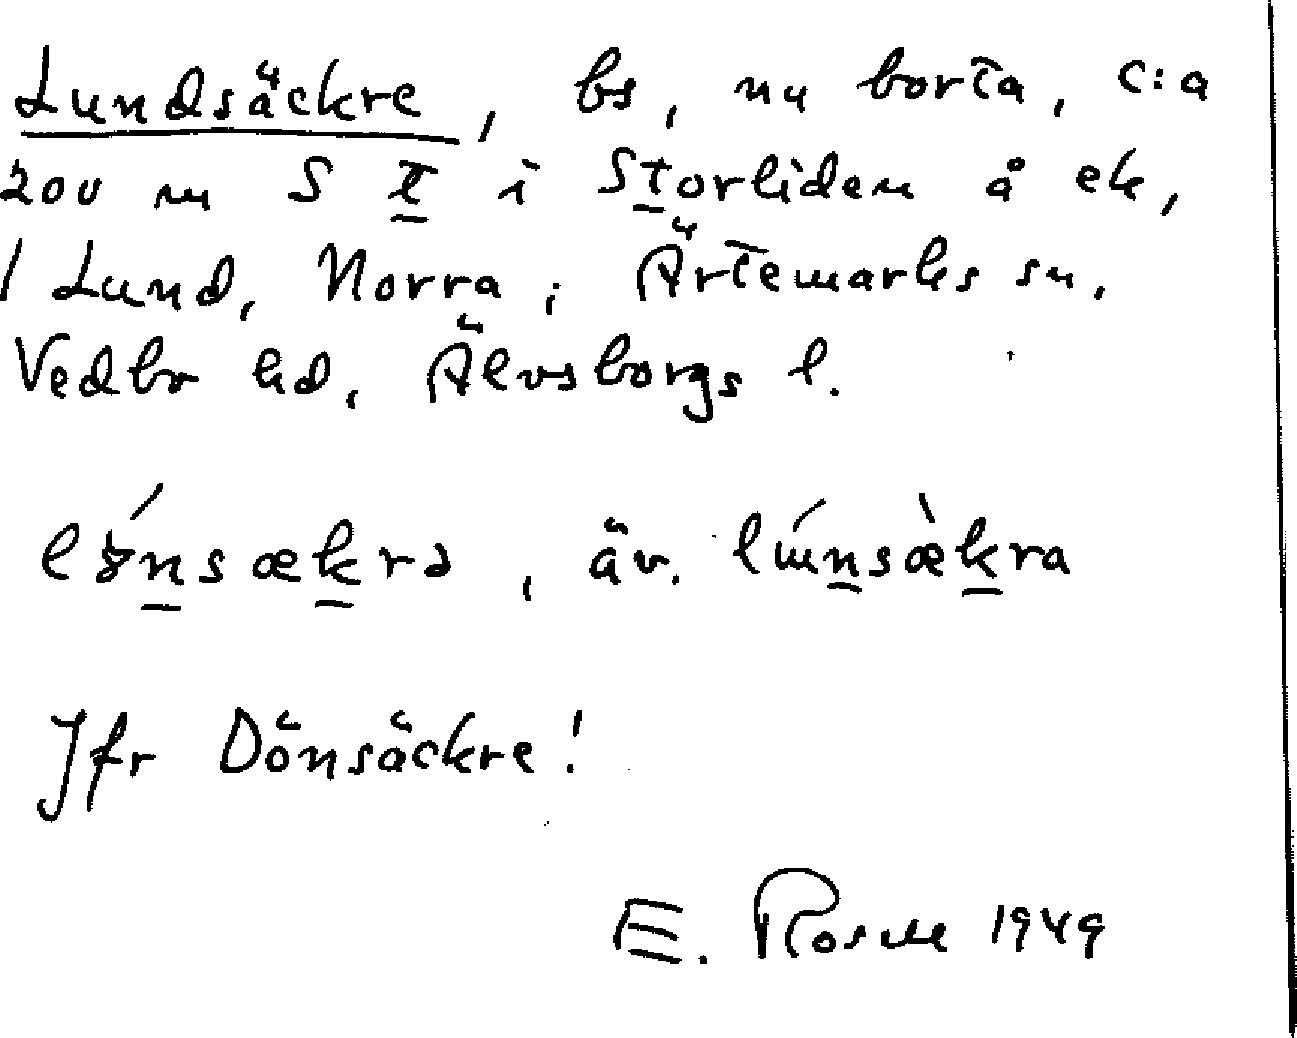 Lundsäckre, bs, nu borta, c:a
200 m S t i Storliden å ek,
1 Lund, Norra; Ärtemarks sn,
Vedbo hd, Älvsborgs l.
äv.
Jfr Dönsäckre!
E. Rosell 1949